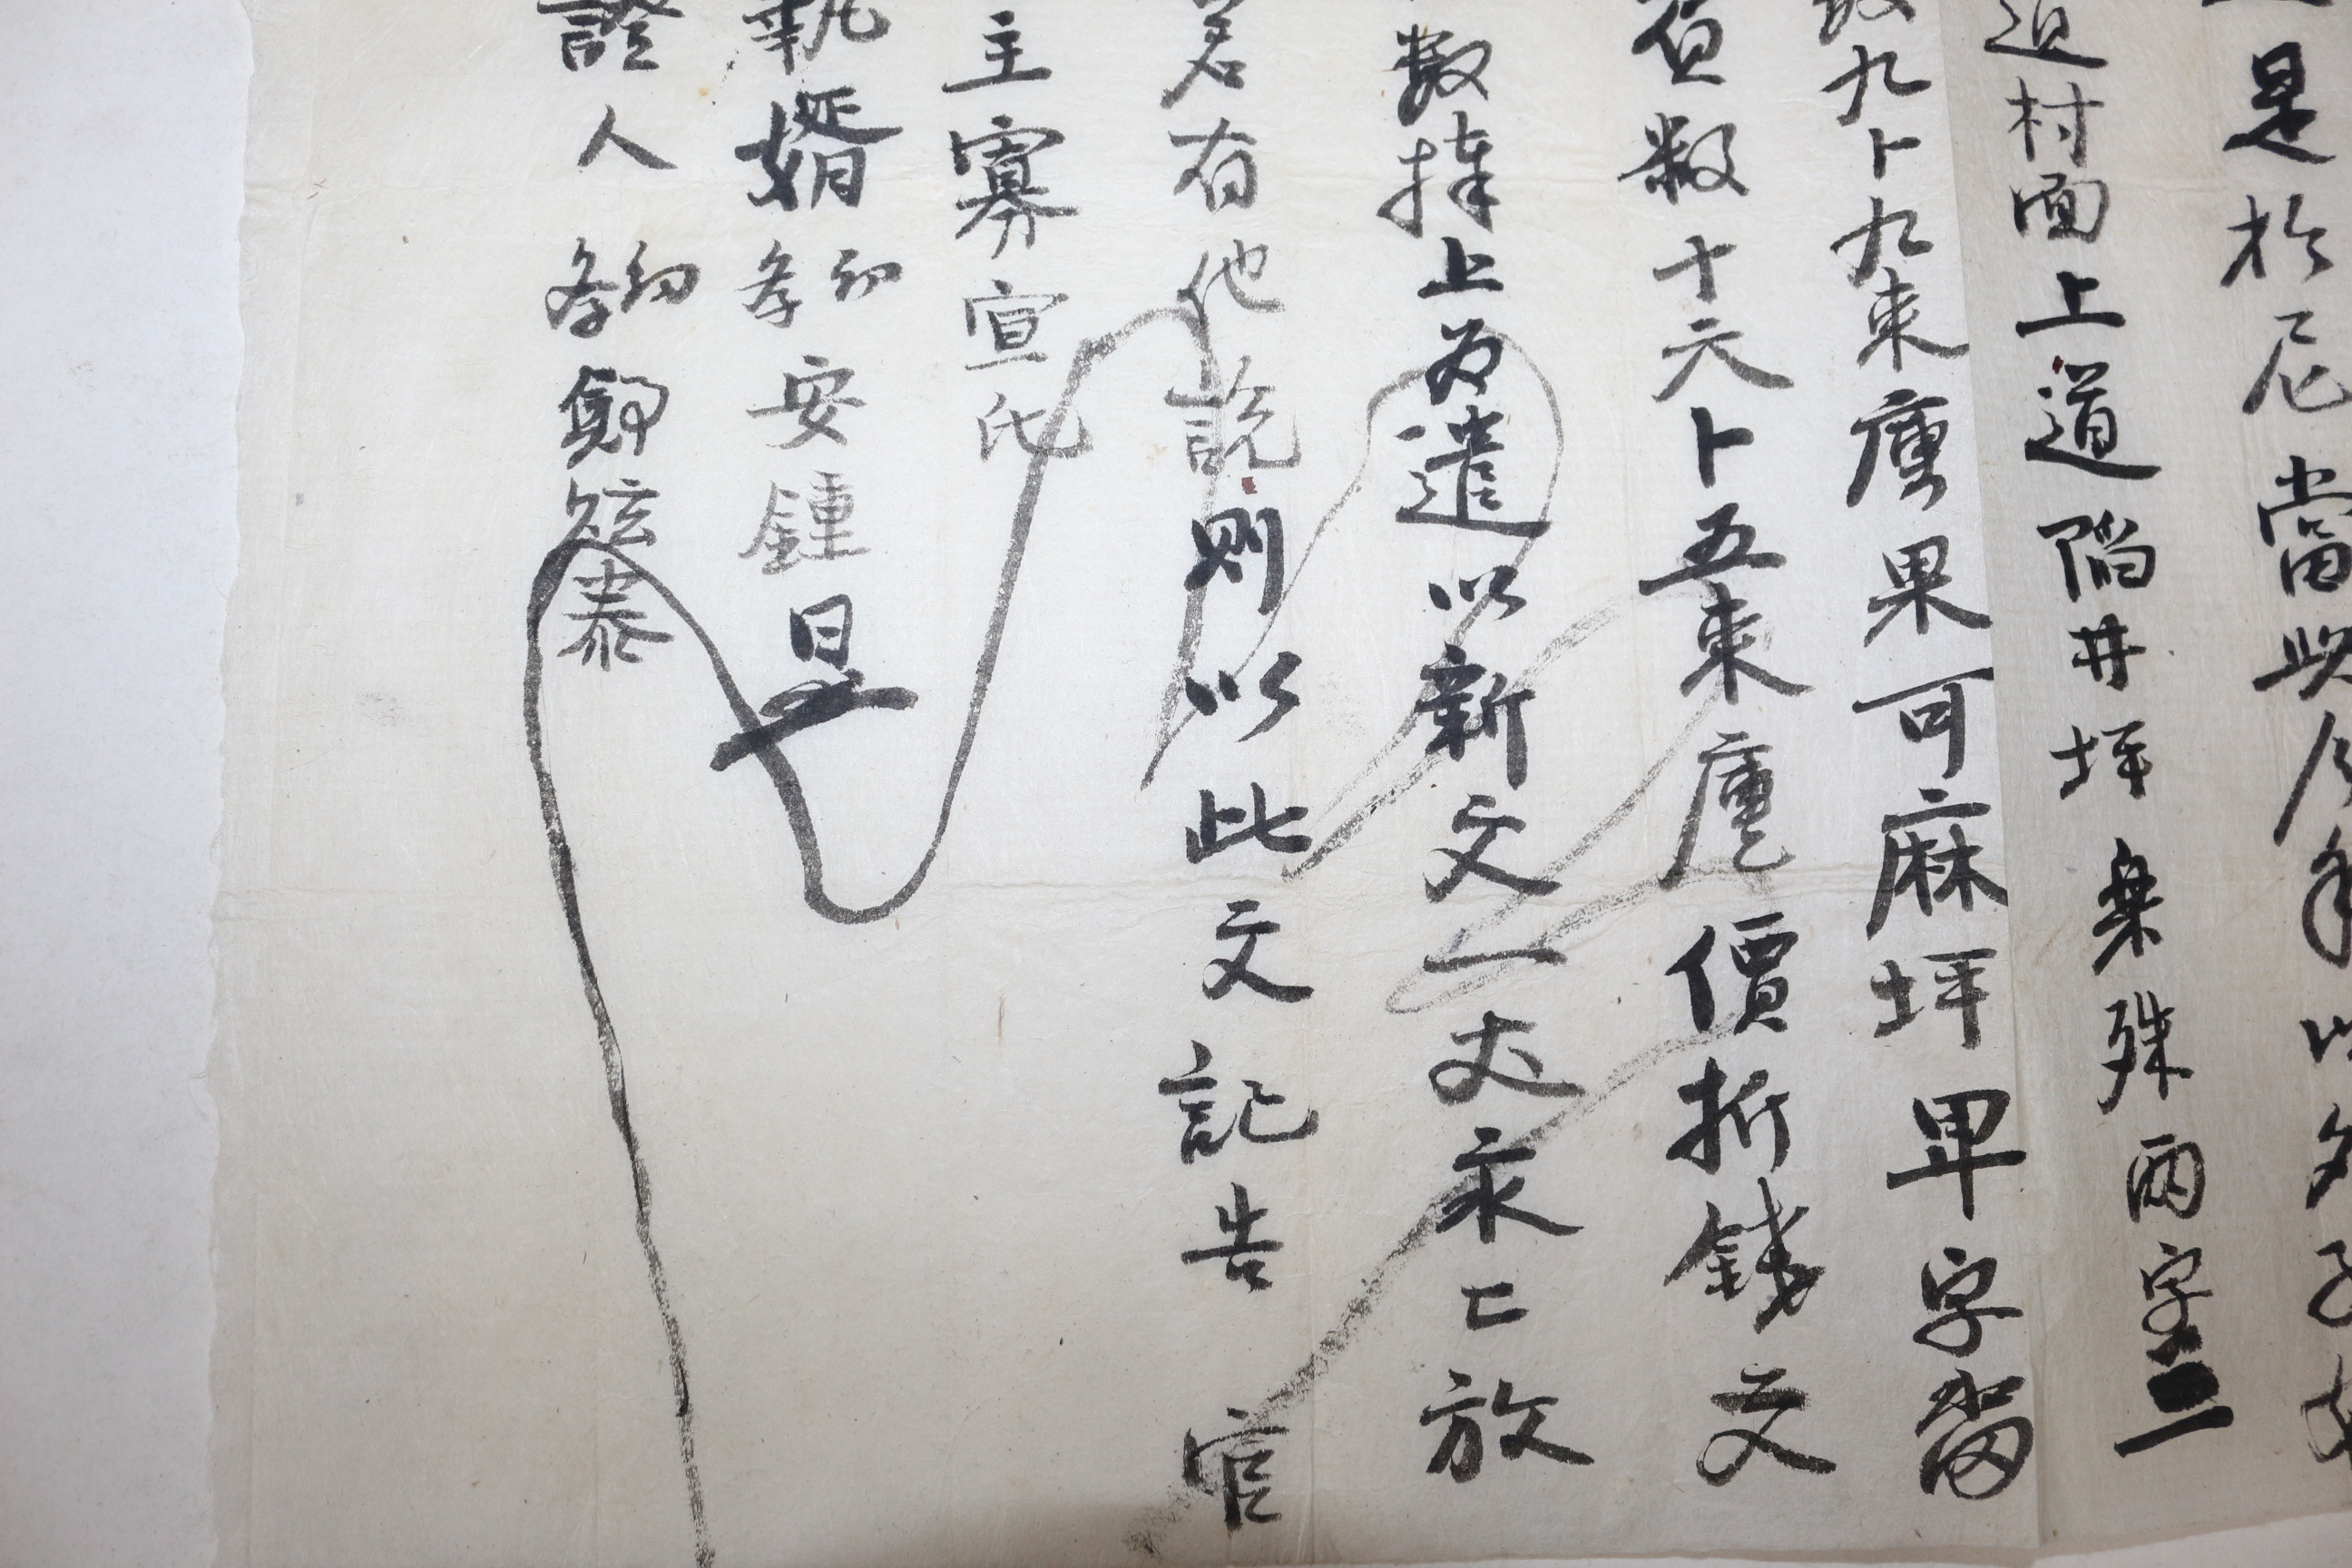 是於尼當此
迫村面上道陷井坪 殊兩字二
九卜九束庫果可麻坪畓字畓
負數十六卜五束庫價折錢文
數捧上為遣以新文一丈永〻放
若有他說則以此文記告官
主寡宣氏
執婿幼學安鍾昱
證人幼學鄭鉉泰